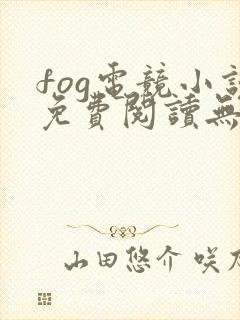 fog電競小說
免費閱讀無
山田悠介 咲